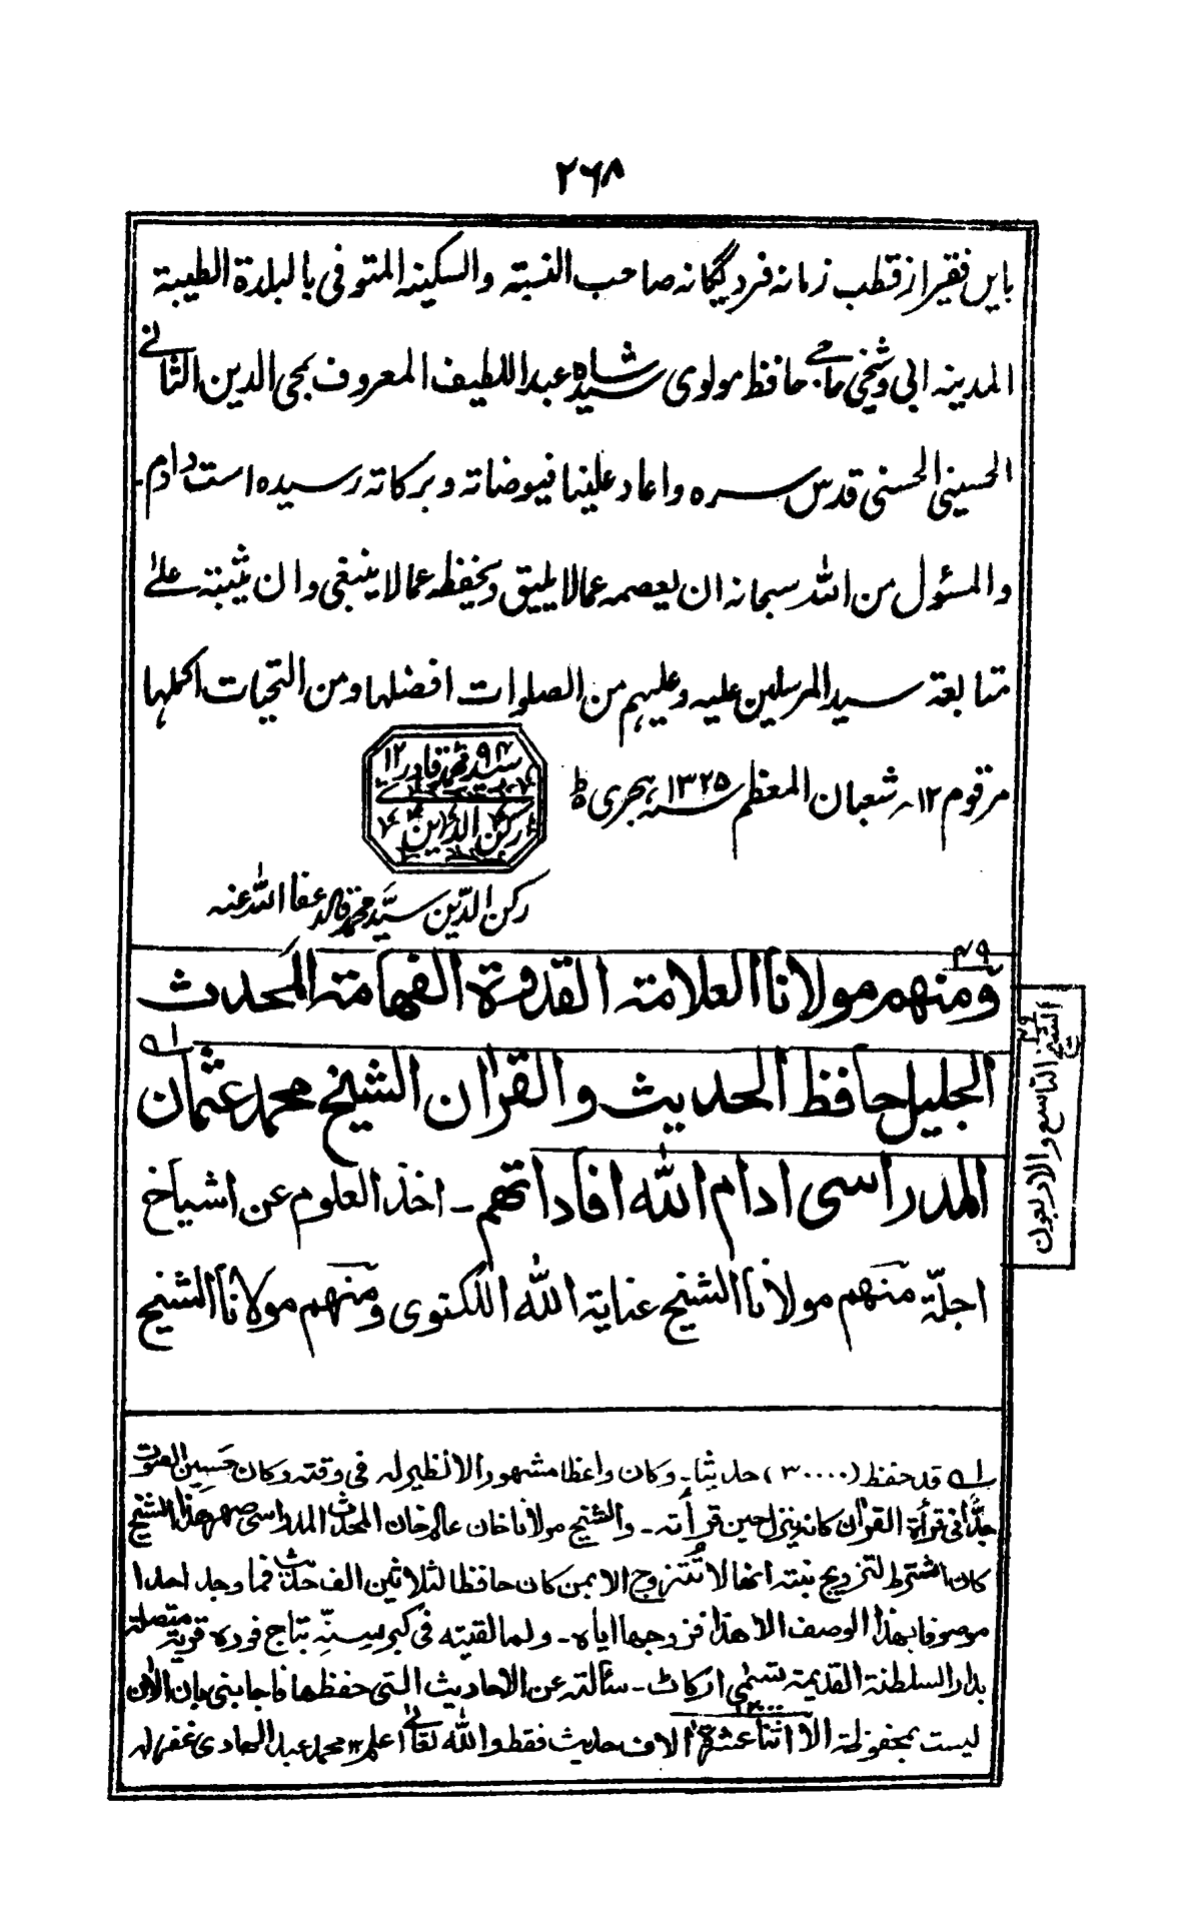 ٢٦٨
بایں فقیر از قطب زمانہ فرد یگانہ صاحب النسبتہ والسکینہ المتوفی بالبلدة الطیبة
المدینہ ابی وشیخی حاجی حافظ مولوی سید شاہ عبد اللطیف المعروف بمحی الدین الثانی
الحسینی الحسنی قدس سرہ واعاد علینا فیوضاتہ وبرکاتہ رسیدہ است دادم۔
والمسئول من اللہ سبحانہ ان یعصمہ عمالایلیق ویحفظہ عمالاینبغی وان یثبتہ علیٰ
متابعۃ سید المرسلین علیہ وعلیہم من الصلوات افضلہا ومن التحیات اکملہا
مرقوم ١٢؍ شعبان المعظم سنہ ١٣٢٥ ہجری
سید محمد قادری
رکن الدین
رکن الدین سیّد محمد قادری عفا اللہ عنہ
٤٩
ومنهم مولانا العلامة القدوة الفهامة المحدث
الجليل حافظ الحديث والقراٰن الشيخ محمد عثمان ؎١
المدراسى ادام الله افاداتهم ۔ اخذ العلوم عن اشياخ
اجلّة منهم مولانا الشيخ عناية الله اللكنوى ومنهم مولانا الشيخ
الشيخ التاسع والاربعون
٤٩
؎١ قد حفظ (٣٠٠٠٠) حديثا ۔ وكان واعظا مشهورا لانظير له فى وقته وكان حَسِين الصوت
جدًّا فى قرأة القراٰن كانه ينزل حين قرأته ۔ والشيخ مولانا خان عالم خان المحدث المدراسى صهر هذا الشيخ
كان اشترط لتزويج بنته انها لا تتزوج الا بمن كان حافظا لثلاثين الف حديث فما وجد احدا
موصوفا بهذا الوصف الا هذا فزوجها اياه ۔ ولما لقيته فى كبر سنّه بتاج فوره قرية متصلة
بدار السلطنة القديمة تسمى اركاٹ ۔ سألته عن الاحاديث التى حفظها فاجابنى بان الاٰن
ليست بمحفوظة الا اثنا عشرة ١٢٠٠٠ الاف حديث فقط والله تعالىٰ اعلم ١٢ محمد عبد الهادى غفر له